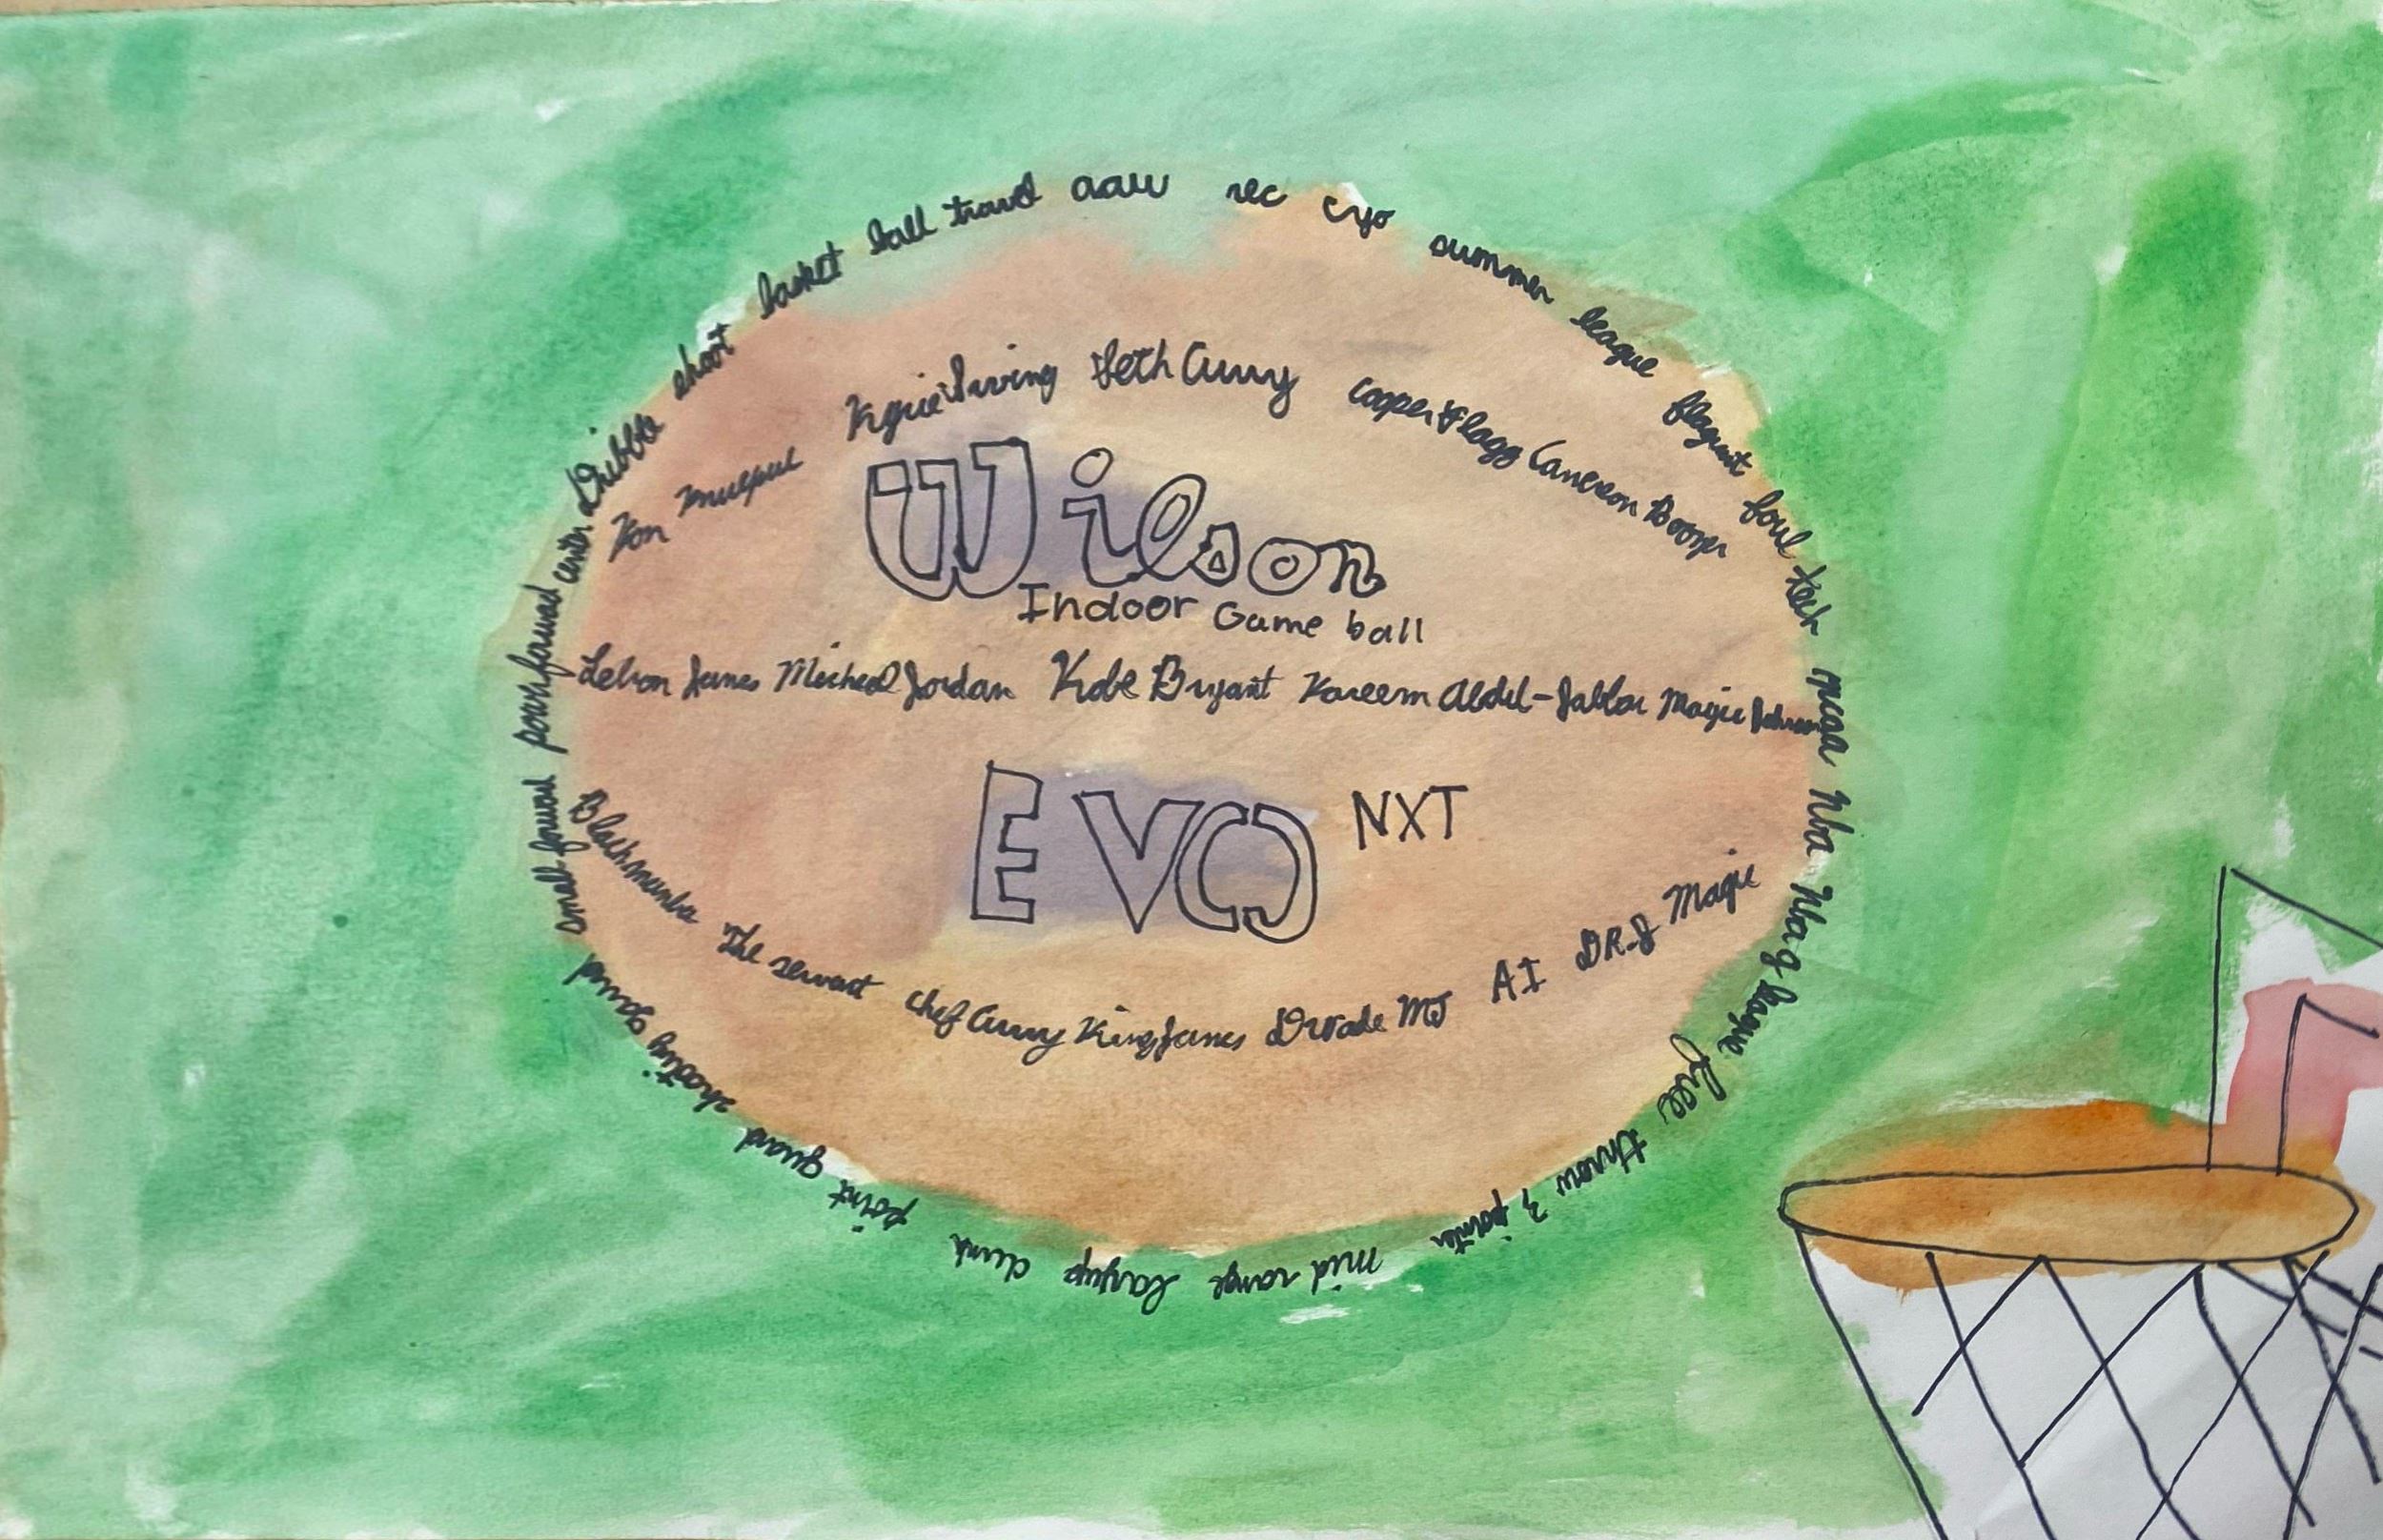 dribble shoot basket ball travel aau rec cyo summer league flagrant foul tech ncaa Nba Nba g league free throw 3 pointer mid range layup dunk point guard shooting guard small foward power foward center
Kon Knuepul Kyrie Irving Seth Curry Cooper Flagg Cameron Boozer
Wilson
Indoor Game ball
Lebron James Micheal Jordan Kobe Bryant Kareem Abdul-Jabbar Magic Johnson
EVO NXT
Blackmamba The servant Chef Curry King James D wade MJ AI DR-J Magic